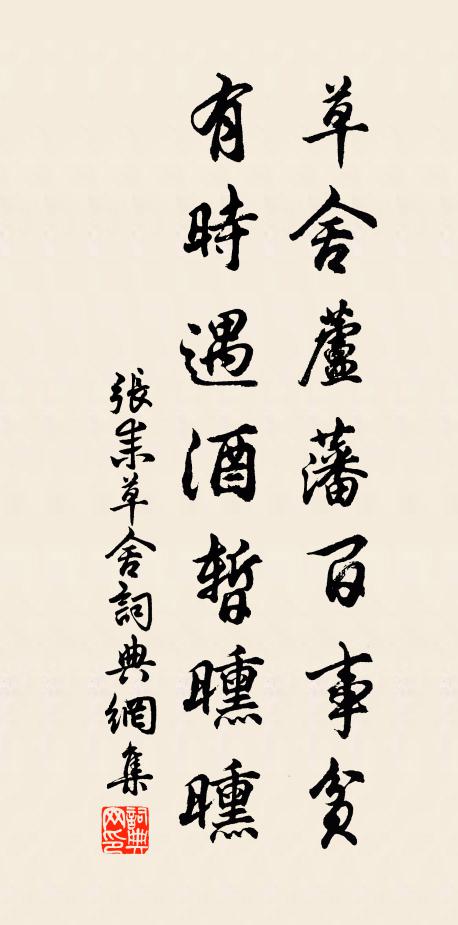 草舍蘆藩百事貧
有時遇酒暫曛曛
張耒草舍詞典網集
詞典網印